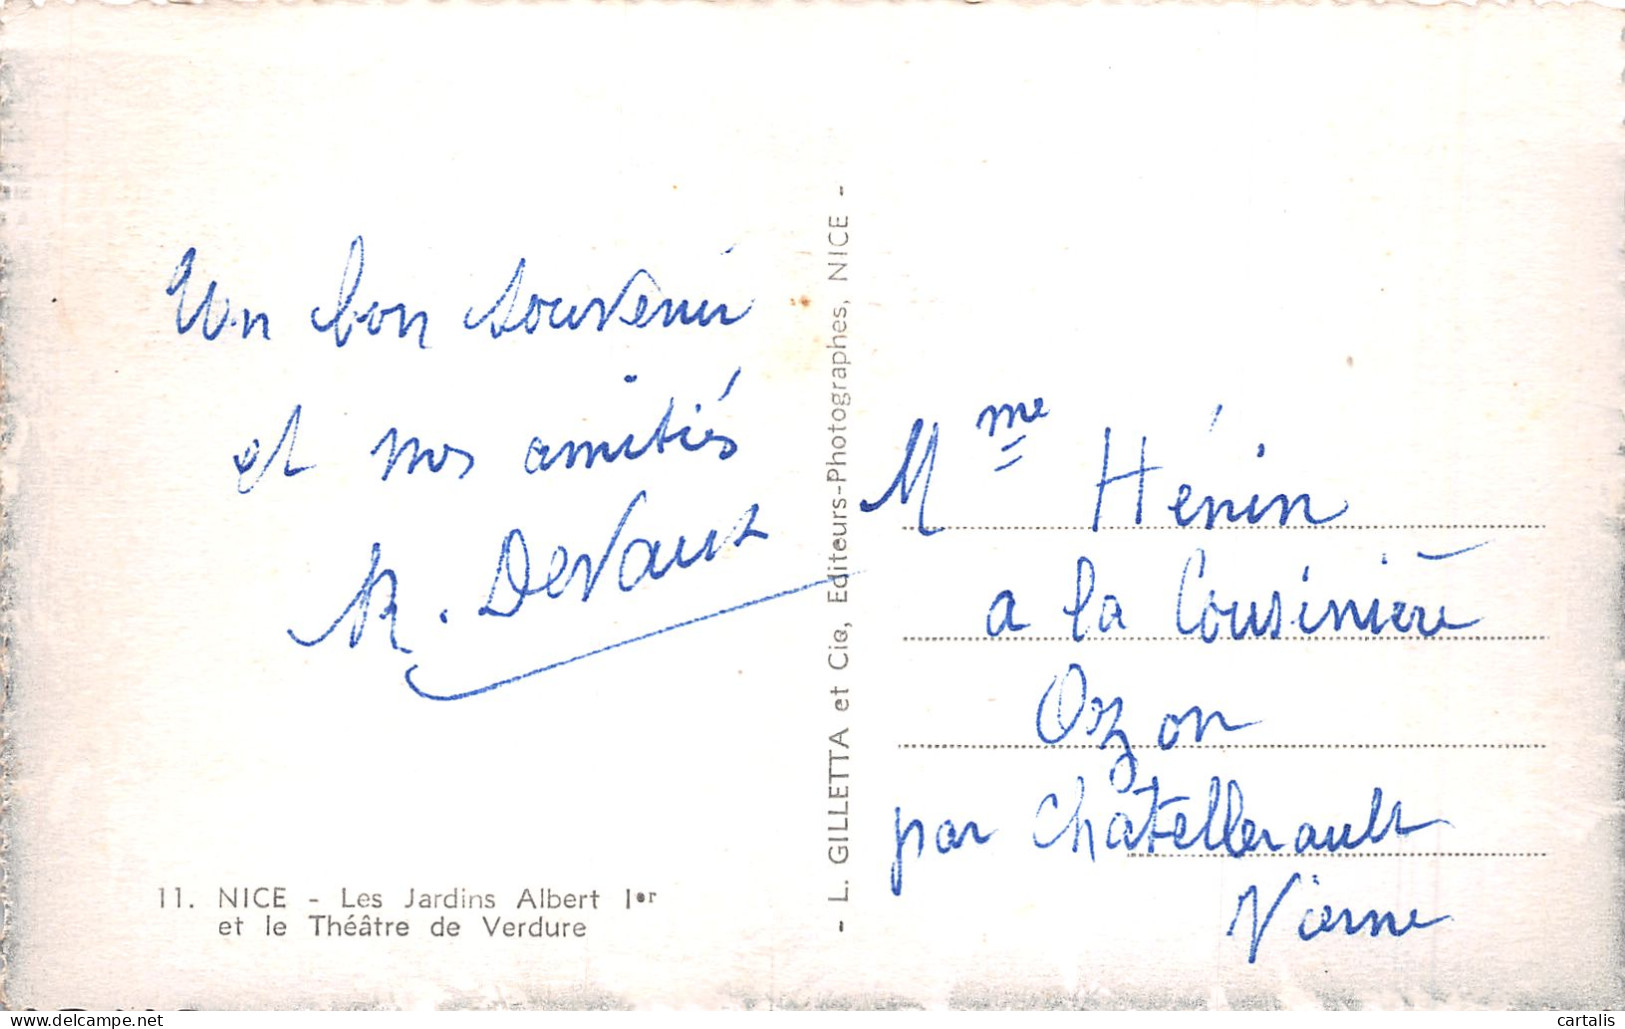 Un bon souvenir
et nos amitiés
R. Devaux
11. NICE - Les Jardins Albert Ier
et le Théâtre de Verdure
- L. GILLETTA et Cie, Editeurs-Photographes, NICE -
Mme Hénin
a la Cousinière
Ozon
par Chatellerault
Vienne
cartalis